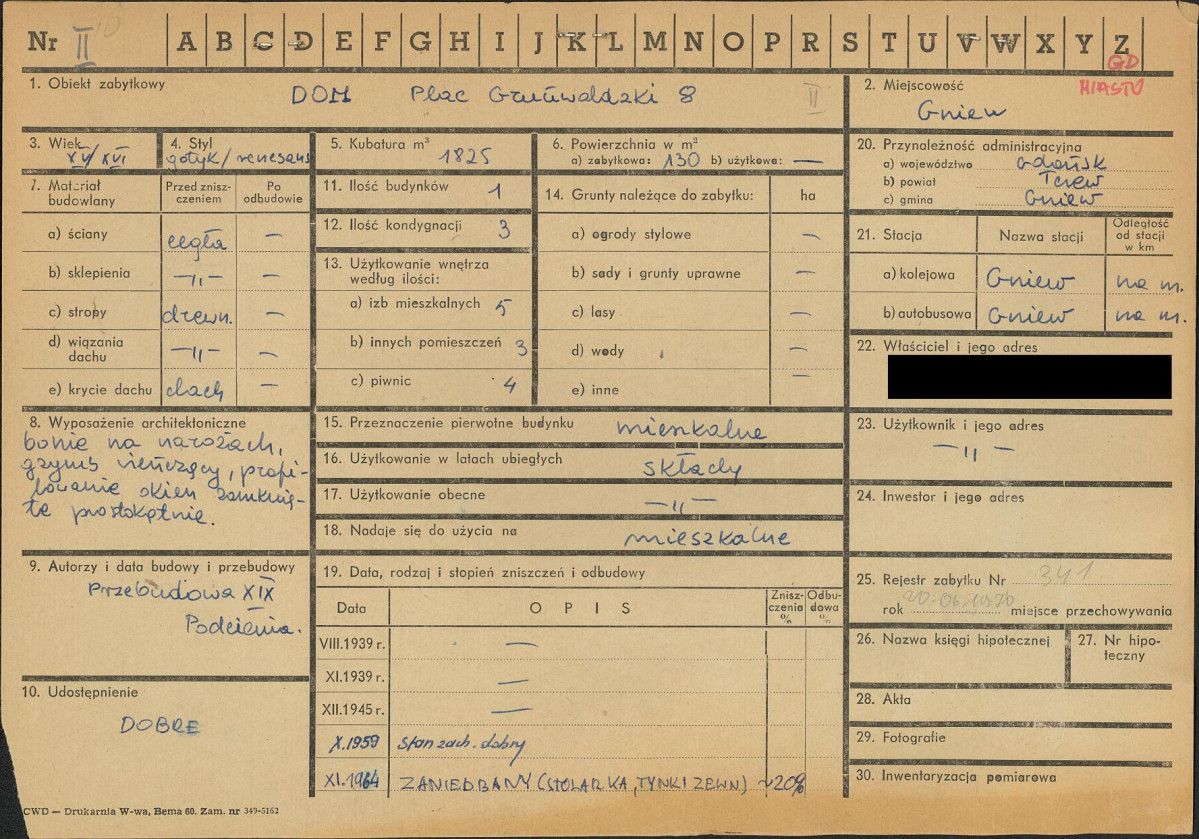 Nr II A B C D E F G H I J K L M N O P R S T U V W X Y Z
GD
MIASTO
1. Obiekt zabytkowy
DOM Plac Grunwaldzki 8 II
2. Miejscowość
Gniew
3. Wiek
XV/XVI
4. Styl
gotyk/renesans
5. Kubatura m³ 1825
6. Powierzchnia w m²
a) zabytkowa: 130 b) użytkowa: —
20. Przynależność administracyjna
a) województwo Gdańsk
b) powiat Tczew
c) gmina Gniew
7. Materiał budowlany
Przed zniszczeniem
Po odbudowie
a) ściany cegła —
b) sklepienia —„— —
c) stropy drewn. —
d) wiązania dachu —„— —
e) krycie dachu dach —
11. Ilość budynków 1
12. Ilość kondygnacji 3
13. Użytkowanie wnętrza
według ilości:
a) izb mieszkalnych 5
b) innych pomieszczeń 3
c) piwnic 4
14. Grunty należące do zabytku: ha
a) ogrody stylowe —
b) sady i grunty uprawne —
c) lasy —
d) wody —
e) inne —
21. Stacja Nazwa stacji Odległość
od stacji
w km
a) kolejowa Gniew na m.
b) autobusowa Gniew na m.
22. Właściciel i jego adres
8. Wyposażenie architektoniczne
bonie na narożach,
gzyms wieńczący, profi-
lowanie okien zamknię-
te prostokątnie.
15. Przeznaczenie pierwotne budynku mieszkalne
16. Użytkowanie w latach ubiegłych składy
17. Użytkowanie obecne —„—
18. Nadaje się do użycia na mieszkalne
23. Użytkownik i jego adres
—„—
24. Inwestor i jego adres
9. Autorzy i data budowy i przebudowy
Przebudowa XIX
Podcienia.
10. Udostępnienie
DOBRE
19. Data, rodzaj i stopień zniszczeń i odbudowy
Data OPIS Znisz-
czenia
% Odbu-
dowa
%
VIII.1939 r. —
XI.1939 r. —
XII.1945 r. —
X.1959 Stan zach. dobry
XI.1964 ZANIEDBANY (STOLARKA, TYNKI ZEWN) ~20%
25. Rejestr zabytku Nr 341
rok 20.06.1970 miejsce przechowywania
26. Nazwa księgi hipotecznej
27. Nr hipo-
teczny
28. Akta
29. Fotografie
30. Inwentaryzacja pomiarowa
CWD — Drukarnia W-wa, Bema 60. Zam. nr 349-5162